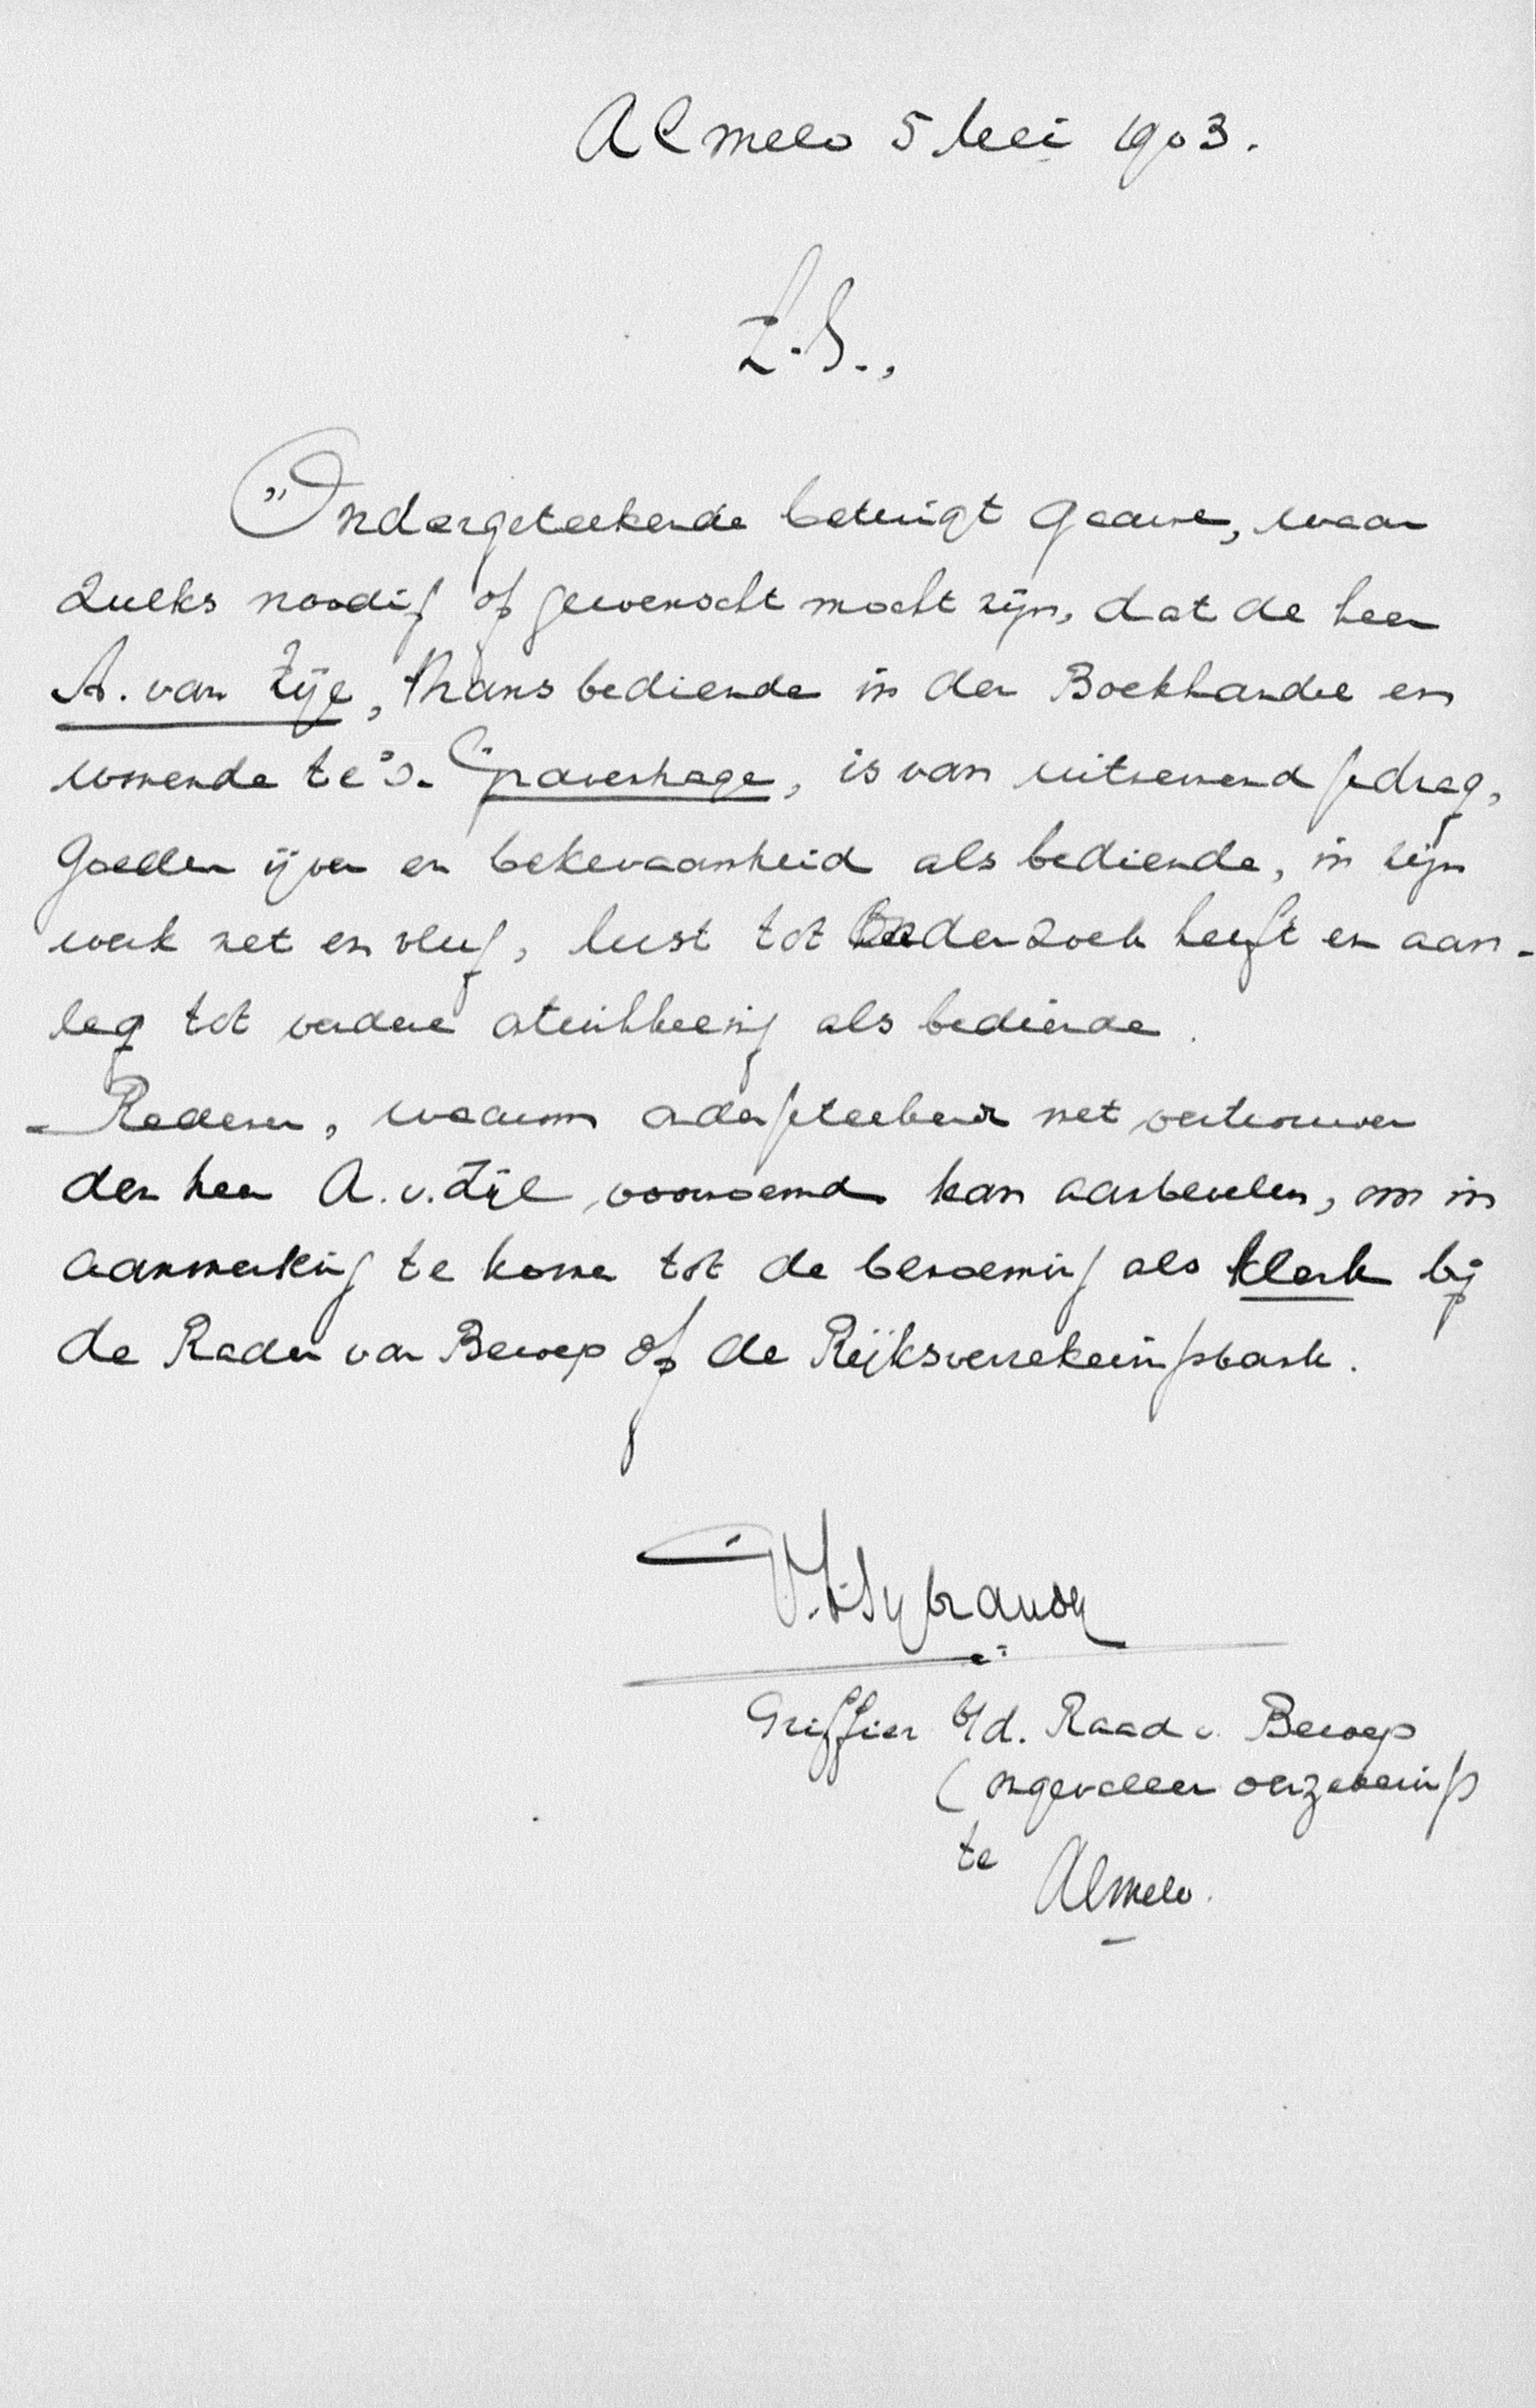 Almelo 5 Mei 1903.
L.S.,
"Ondergeteekende betuigt gaarne, waar
zulks noodig of gewenscht mocht zijn, dat de heer
A. van Zijl, thans bediende in den Boekhandel en
wonende te 's-Gravenhage, is van uitnemend gedrag,
goeden ijver en bekwaamheid als bediende, in zijn
werk net en vlug, lust tot onderzoek heeft en aan-
leg tot verdere ontwikkeling als bediende.
Redenen, waarom ondergeteekende met vertrouwen
den heer A. v. Zijl voornoemd kan aanbevelen, om in
aanmerking te komen tot de benoeming als klerk bij
de Raden van Beroep of de Rijksverzekeringsbank.
Sybrandy
Griffier b/d. Raad v. Beroep
(ongevallen verzekerings
te
Almelo.